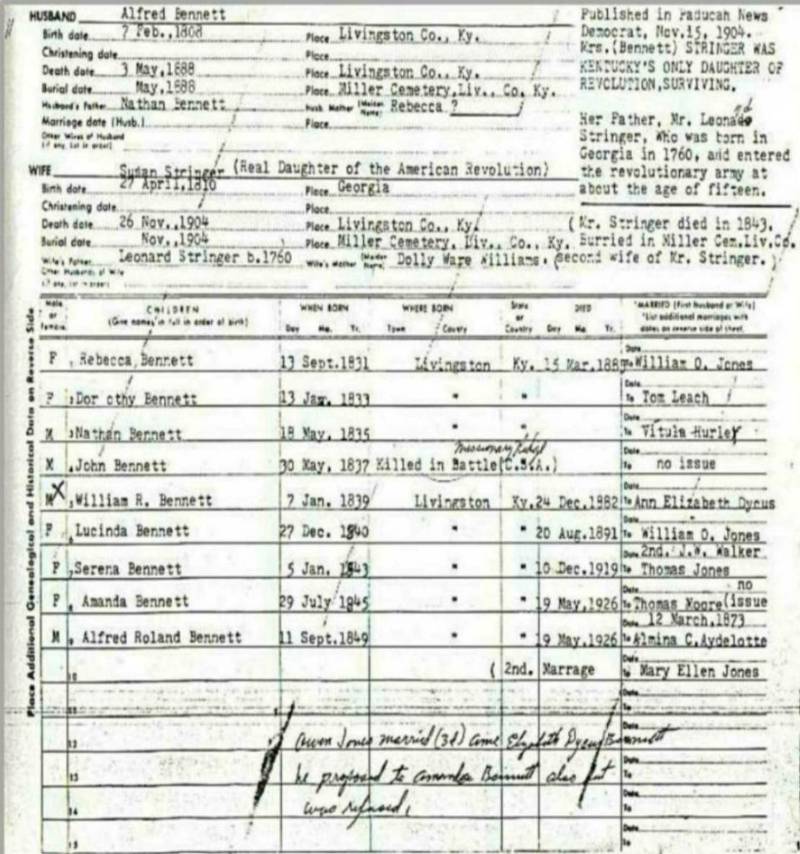 HUSBAND Alfred Bennett
Birth date 7 Feb.,1808 Place Livingston Co., Ky.
Christening date Place
Death date 3 May,1888 Place Livingston Co., Ky.
Burial date May,1888 Place Miller Cemetery,Liv., Co. Ky.
Husband's Father Nathan Bennett Husb. Mother (Maiden Name) Rebecca ?
Marriage date (Husb.) Place
Other Wives of Husband
(if any, list in order)
Published in Paducah News
Democrat, Nov.15, 1904.
Mrs.(Bennett) STRINGER WAS
KENTUCKY'S ONLY DAUGHTER OF
REVOLUTION,SURVIVING.
Her Father, Mr. Leonard
Stringer, Who was born in
Georgia in 1760, and entered
the revolutionary army at
about the age of fifteen.
WIFE Susan Stringer (Real Daughter of the American Revolution)
Birth date 27 April,1816 Place Georgia
Christening date Place
Death date 26 Nov.,1904 Place Livingston Co., Ky. ( Mr. Stringer died in 1843.
Burial date Nov.,1904 Place Miller Cemetery, Liv., Co., Ky. Burried in Miller Cem.Liv.Co.
Wife's Father Leonard Stringer b.1760 Wife's Mother (Maiden Name) Dolly Ware Williams. (second wife of Mr. Stringer.)
Other Husbands of Wife
(if any, list in order)
Place Additional Genealogical and Historical Data on Reverse Side
Male or Female CHILDREN WHEN BORN WHERE BORN State or Country DIED *MARRIED (First Husband or Wife)
(Give names in full in order of birth) Day Mo. Yr. Town County Day Mo. Yr. *List additional marriages with dates on reverse side of sheet.
Date
F Rebecca Bennett 13 Sept.1831 Livingston Ky. 15 Mar. To William O. Jones
Date
F Dorothy Bennett 13 Jan. 1833 " " To Tom Leach
Date
M Nathan Bennett 18 May, 1835 " " To Vitula Hurley
Missionary Ridge
Date
M John Bennett 30 May, 1837 Killed in Battle(C.S.A.) To no issue
Date
M X William R. Bennett 7 Jan. 1839 Livingston Ky. 24 Dec.1882 To Ann Elizabeth Dycus
Date
F Lucinda Bennett 27 Dec. 1840 " " 20 Aug.1891 To William O. Jones
Date 2nd. J.W. Walker
F Serena Bennett 5 Jan. 1843 " " 10 Dec.1919 To Thomas Jones
Date no
F Amanda Bennett 29 July 1845 " " 19 May,1926 To Thomas Moore(issue
Date 12 March,1873
M Alfred Roland Bennett 11 Sept.1849 " " 19 May,1926 To Almina C.Aydelotte
Date
10 ( 2nd. Marrage To Mary Ellen Jones
Date
11 To
Date
12 Owen Jones married (3d) Anne Elizabeth Dycus Bennett
Date
13 he proposed to Amanda Bennett also but To
Date
14 was refused. To
Date
15 To